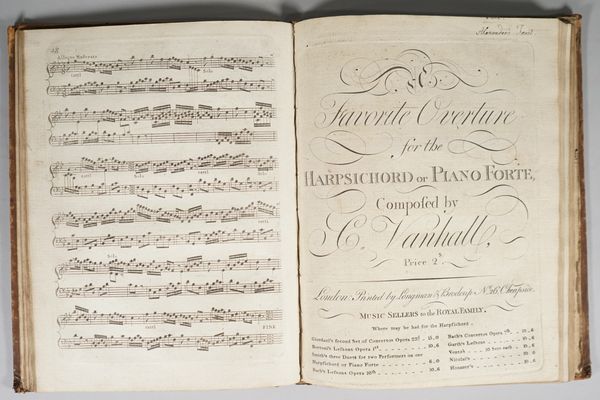 28
Allegro Moderato
tutti
Solo
tutti
Solo
tutti
tutti
Solo
tutti
FINE
A
Favorite Overture
for the
HARPSICHORD or PIANO FORTE,
Composed by
C. Vanhall,
Price 2s.
London: Printed by Longman & Broderip No. 26 Cheapside
MUSIC SELLERS to the ROYAL FAMILY.
Where may be had for the Harpsichord
Giordani's second Set of Concertos Opera 23d 15,0
Bertoni's Lessons Opera 1st 10,6
Smith's three Duets for two Performers on one
Harpsichord or Piano Forte 6,0
Bach's Lessons Opera 10,6
Bach's Concertos Opera 10,6
Garth's Lessons 10,6
10 Sons each 10,6
Nicolai's 10,6
10,6